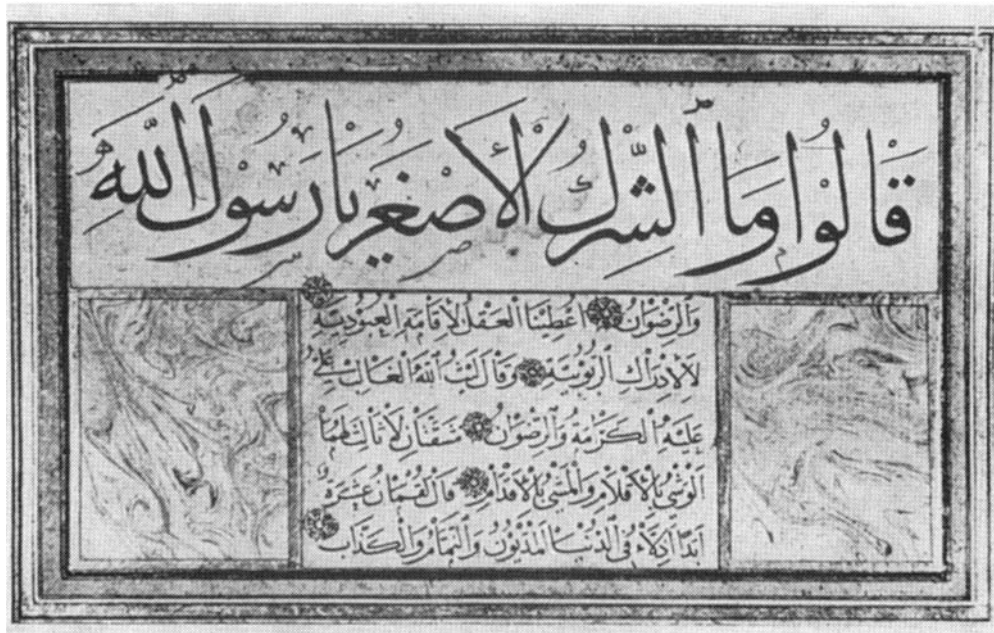 قَالُوْا وَمَا ٱلشِّرْكُ ٱلْأَصْغَرُ يَا رَسُوْلَ ٱللّٰهِ
وَالرِّضْوَانُ اُعْطِيْنَا الْعَقْلُ لِاِقَامَةِ الْعُبُوْدِيَّةِ
لَا لِاِدْرَاكِ الرُّبُوْبِيَّةِ وَقَالَ لَيْثُ ٱللّٰهِ الْغَالِبُ عَلِيٌّ
عَلَيْهِ ٱلْكَرَامَةُ وَٱلرِّضْوَانُ مَشَقَّتَانِ لَا ثَالِثَ لَهُمَا
اَلْوَشْيُ بِالْاَقْلَامِ وَالْمَشْيُ بِالْاَقْدَامِ قَالَ لُقْمَانُ عَشَرَةٌ
اَبَدًا اَذِلَّاءُ فِي الدُّنْيَا اَلْمَدْيُوْنُ وَالنَّمَّامُ وَالْكَذَّابُ